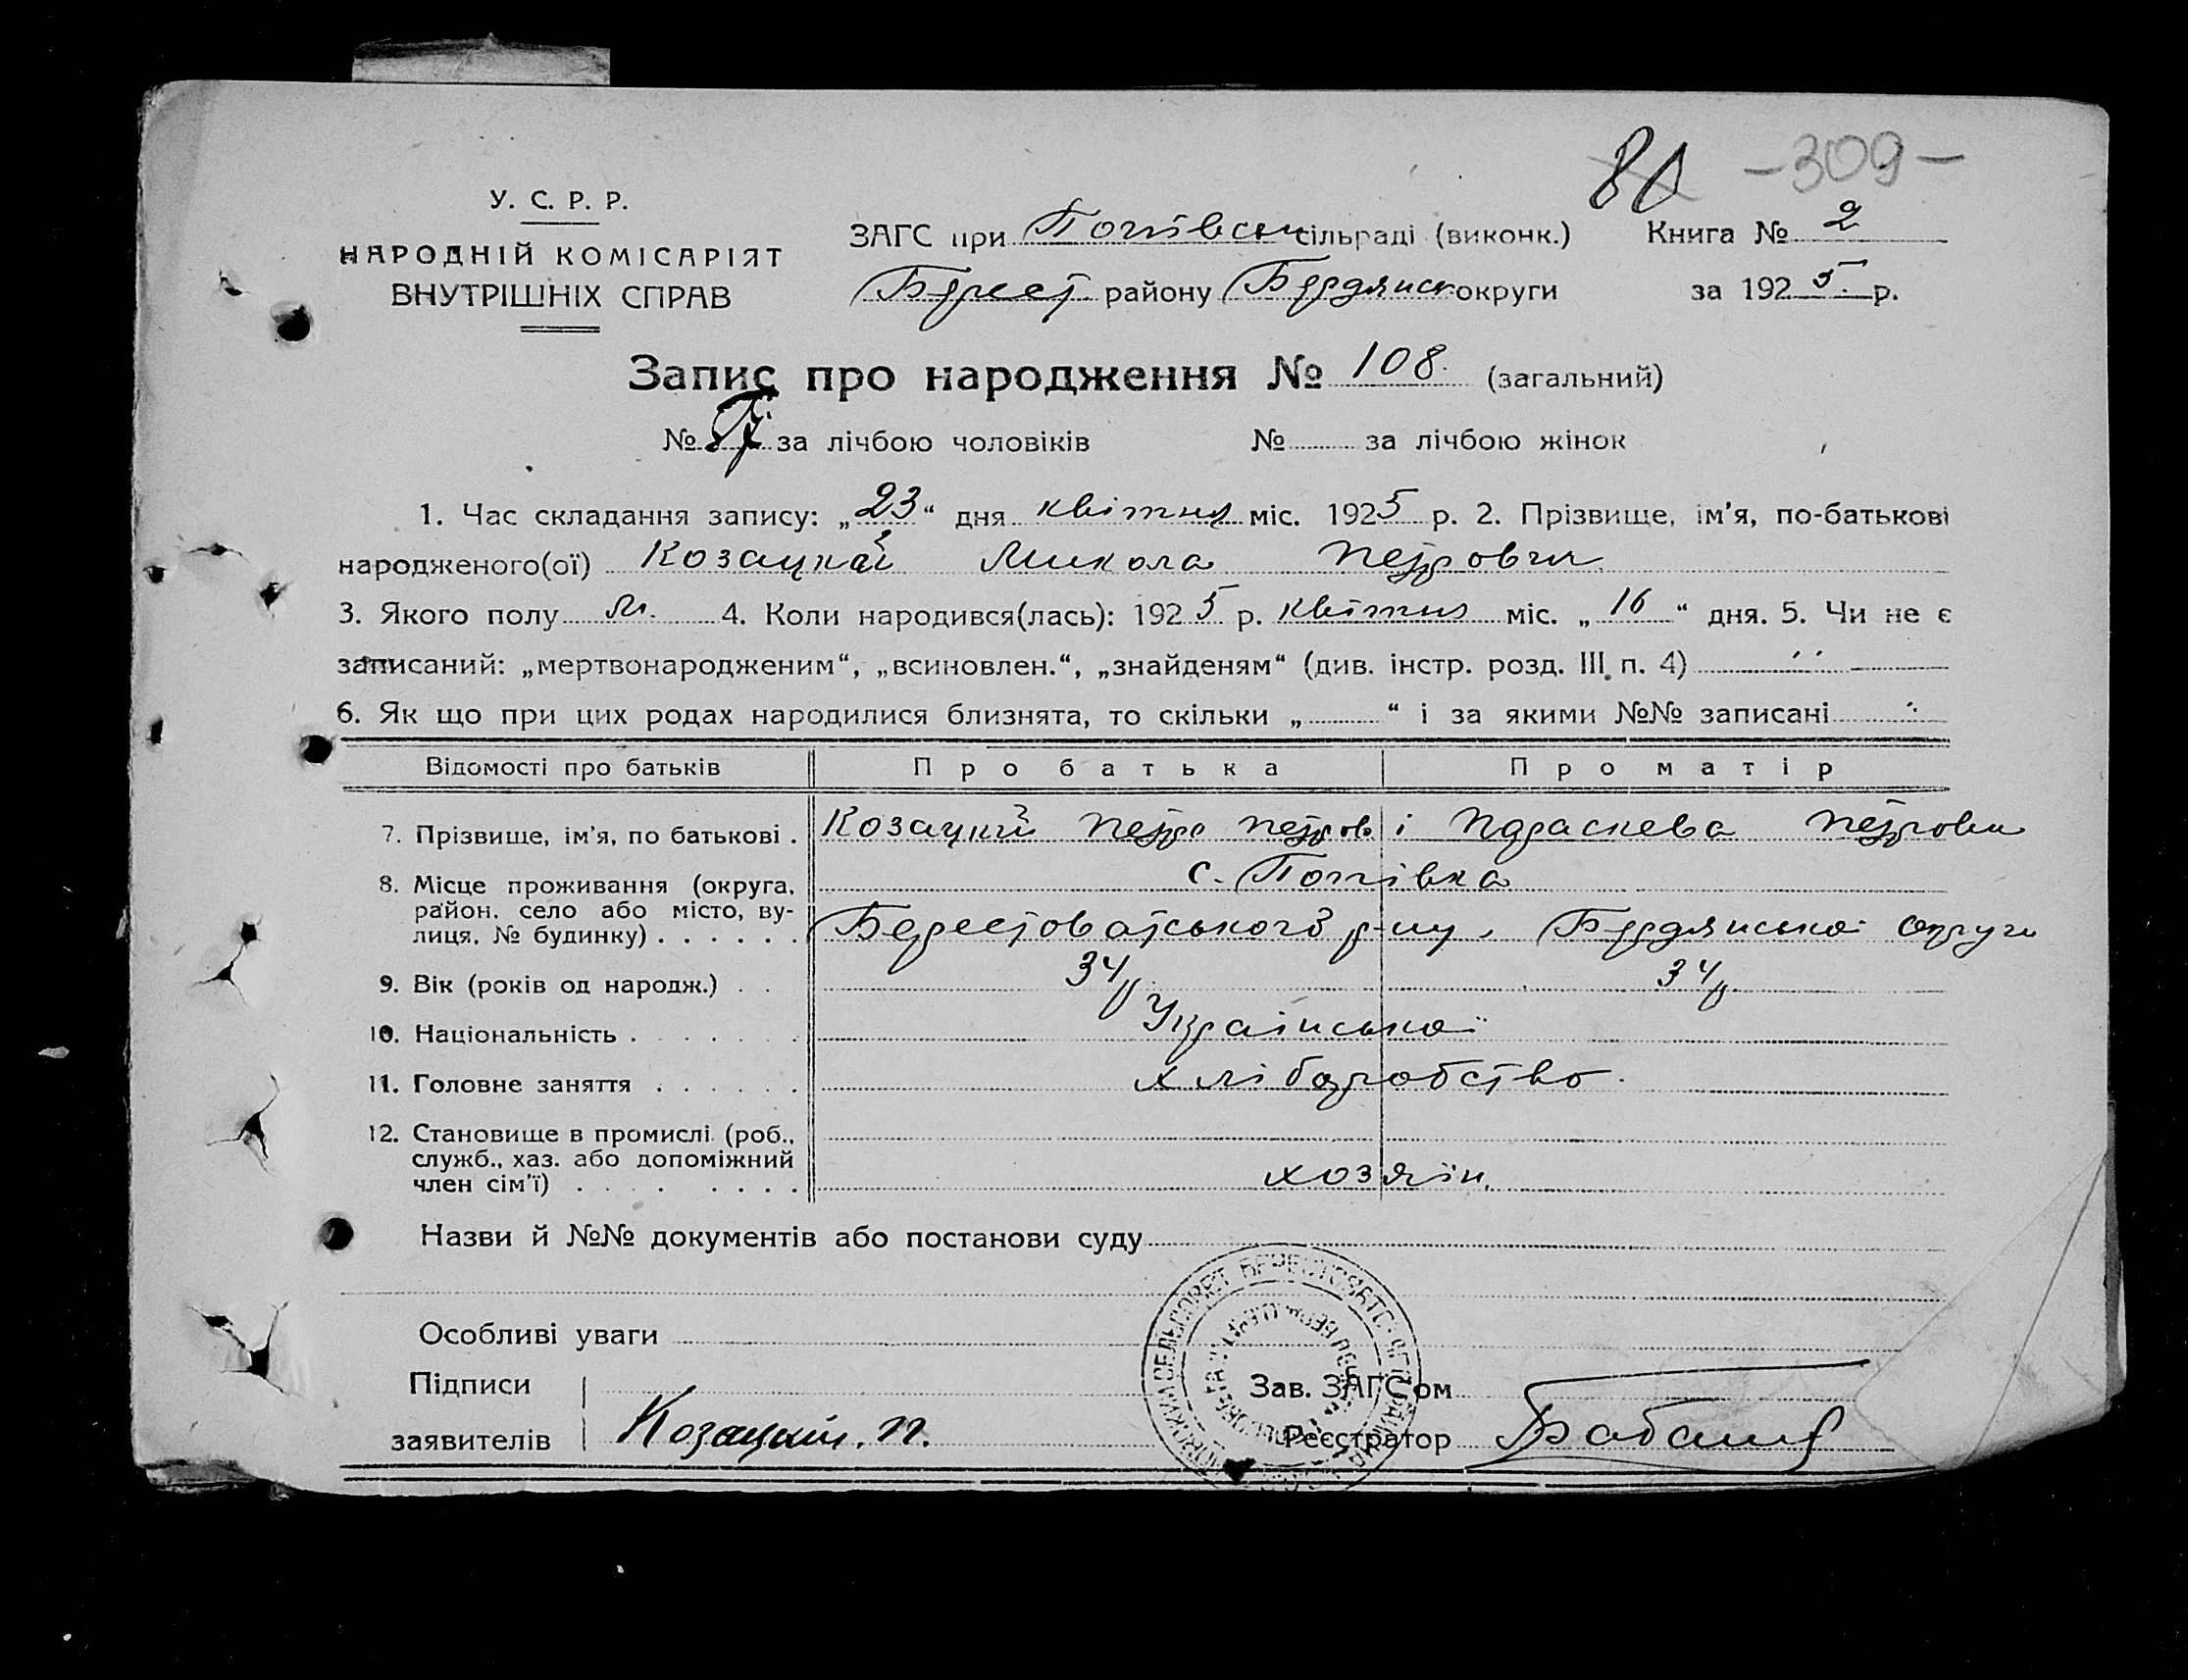 80 -309-
У. С. Р. Р.
НАРОДНІЙ КОМІСАРІЯТ
ВНУТРІШНІХ СПРАВ
ЗАГС при Попівськ сільраді (виконк.) Книга № 2
Берест. району Бердянськ округи за 1925. р.
Запис про народження № 108. (загальний)
№ 57 за лічбою чоловіків № за лічбою жінок
1. Час складання запису: „23“ дня квітня міс. 1925 р. 2. Прізвище, ім'я, по-батькові
народженого(ої) Козацкій Микола Петрович
3. Якого полу м. 4. Коли народився(лась): 1925 р. квітня міс. „16“ дня. 5. Чи не є
записаний: „мертвонародженим“, „всиновлен.“, „знайденям“ (див. інстр. розд. III п. 4)
6. Як що при цих родах народилися близнята, то скільки „ “ і за якими №№ записані
Відомості про батьків Про батька Про матір
7. Прізвище, ім'я, по батькові . Козацкий Петро Петров і Параскева Петровн
8. Місце проживання (округа, с. Попівка
район, село або місто, ву-
лиця, № будинку) . . . . . . Берестоватського р-ну, Бердянської округи
9. Вік (років од народж.) . . 34 34
10. Національність . . . . . . . Української
11. Головне заняття . . . . . . хліборобство.
12. Становище в промислі (роб.,
служб., хаз. або допоміжний
член сім'ї) . . . . . . . . хозяїн.
Назви й №№ документів або постанови суду
Особливі уваги
Підписи Зав. ЗАГС'ом
заявителів Козацкий. П. Реєстратор